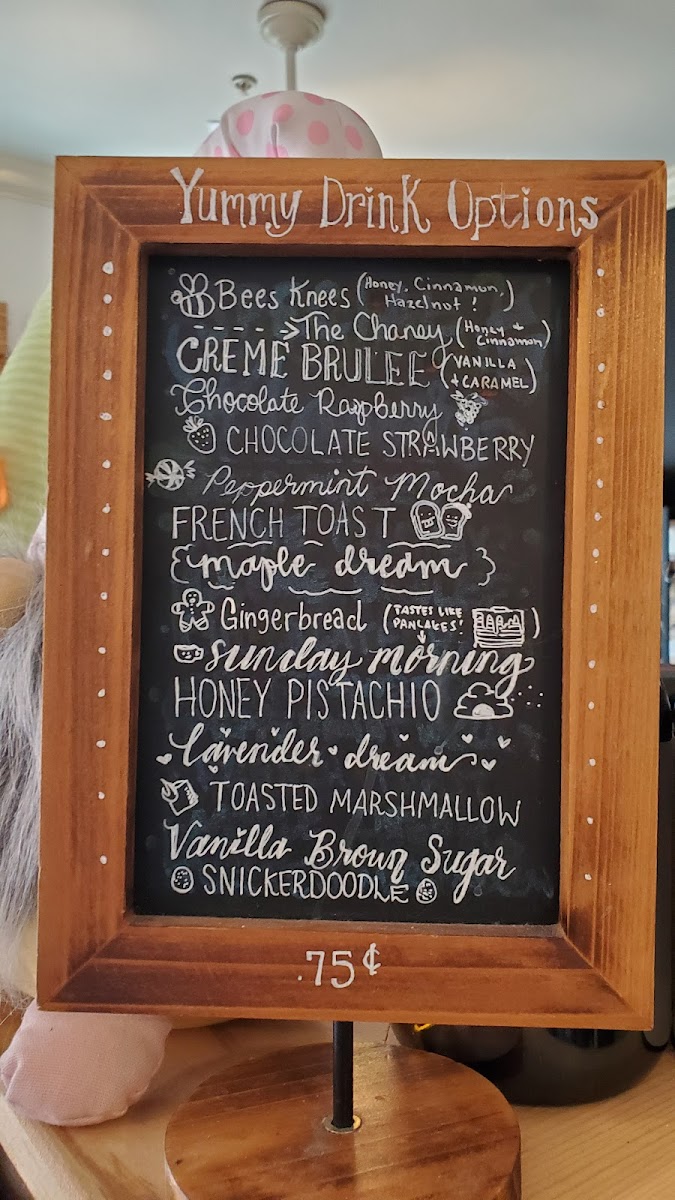 Yummy Drink Options
Bees Knees (Honey, Cinnamon, Hazelnut!)
The Chaney (Honey + Cinnamon)
CREME BRULEE (VANILLA + CARAMEL)
Chocolate Raspberry
CHOCOLATE STRAWBERRY
Peppermint Mocha
FRENCH TOAST
maple dream
Gingerbread (TASTES LIKE PANCAKES!)
sunday morning
HONEY PISTACHIO
lavender dream
TOASTED MARSHMALLOW
Vanilla Brown Sugar
SNICKERDOODLE
.75¢